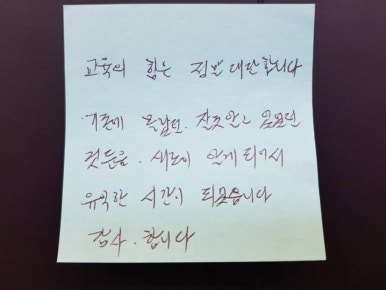 교육의 힘은 정말 대단합니다
기존에 몰랐던. 잘못알고 있었던
것들을. 새로이 알게 되어서
유익한 시간이 되었습니다
감사. 합니다